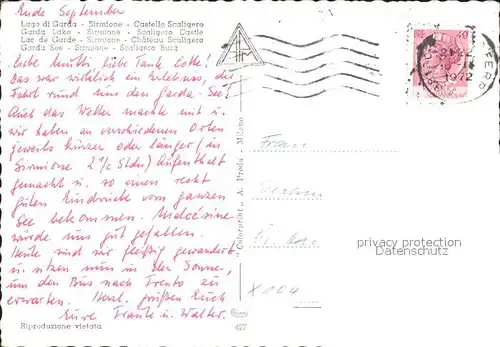 Ende September
Lago di Garda - Sirmione - Castello Scaligero
Garda Lake - Sirmione - Scaligers Castle
Lac de Garde - Sirmione - Château Scaligero
Garda See - Sirmione - Scaligera Burg
Liebe Mutti, liebe Tante Lotte!
Das war wirklich ein Erlebnis, die
Fahrt rund um den Garda-See!
Auch das Wetter machte mit u.
wir haben an verschiedenen Orten
jeweils kürzer oder länger (in
Sirmione 2 1/2 Stdn) Aufenthalt
gemacht u. so einen recht
guten Eindruck vom ganzen
See bekommen. Malcesine
würde uns gut gefallen.
Heute sind wir fleißig gewandert
u. sitzen nun in der Sonne,
um den Bus nach Trento zu
erwarten. Herzl. grüßen Euch
Eure Traute u. Walter.
Riproduzione vietata
427
"Colorprint" A. Preda - Milano
1972
Frau
X 104
privacy protection
Datenschutz